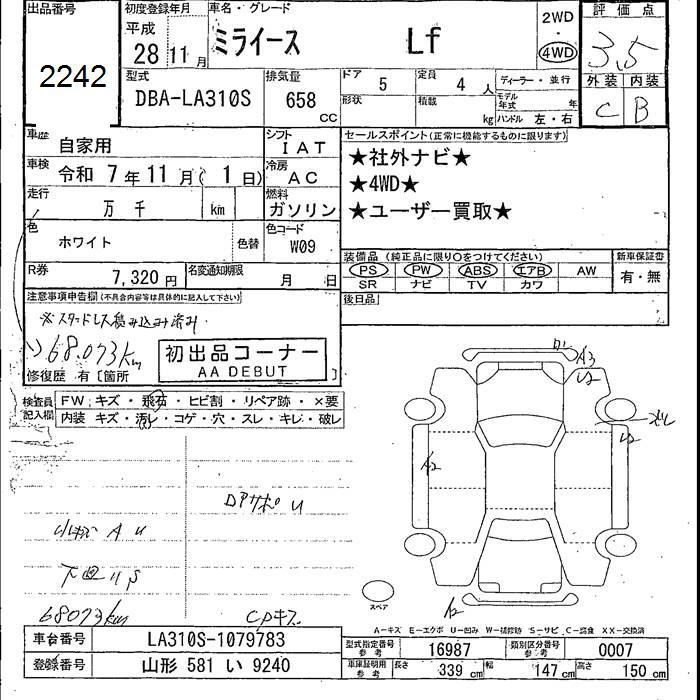 出品番号
2242
初度登録年月
平成
28 11月
車名・グレード
ミライース Lf
2WD
・
4WD
評価点
3.5
外装 内装
C B
型式
DBA-LA310S
排気量
658
CC
ドア 5 定員 4 人
形状 積載 kg
ディーラー・並行
モデル年式 年
ハンドル 左・右
車歴 自家用
シフト IAT
車検 令和 7年 11月( 1日)
冷房 AC
走行 万 千 km
燃料 ガソリン
色 ホワイト 色替
色コード W09
R券 7,320円
名変通知期限 月 日
セールスポイント(正常に機能するものに限ります)
★社外ナビ★
★4WD★
★ユーザー買取★
装備品 (純正品に限り○をつけてください)
PS PW ABS エアB AW
SR ナビ TV カワ
新車保証書
有・無
後日品
注意事項申告欄(不具合内容等は具体的に記入して下さい)
※スタッドレス積み込み済み
68.073km
初出品コーナー
AA DEBUT
修復歴 有〔箇所 〕
検査員記入欄
FW:キズ・飛石・ヒビ割・リペア跡・×要
内装 キズ・汚レ・コゲ・穴・スレ・キレ・破レ
A3
U2
U2
A2
小キズ A U
下回り S
68073km
CPキズ
スペア
A2
A-キズ E-エクボ U-凹み W-補修跡 S-サビ C-腐食 XX-交換済
車台番号 LA310S-1079783
登録番号 山形 581 い 9240
型式指定番号 参考 16987 類別区分番号 参考 0007
車庫証明用 参考 長さ 339 cm 幅 147 cm 高さ 150 cm